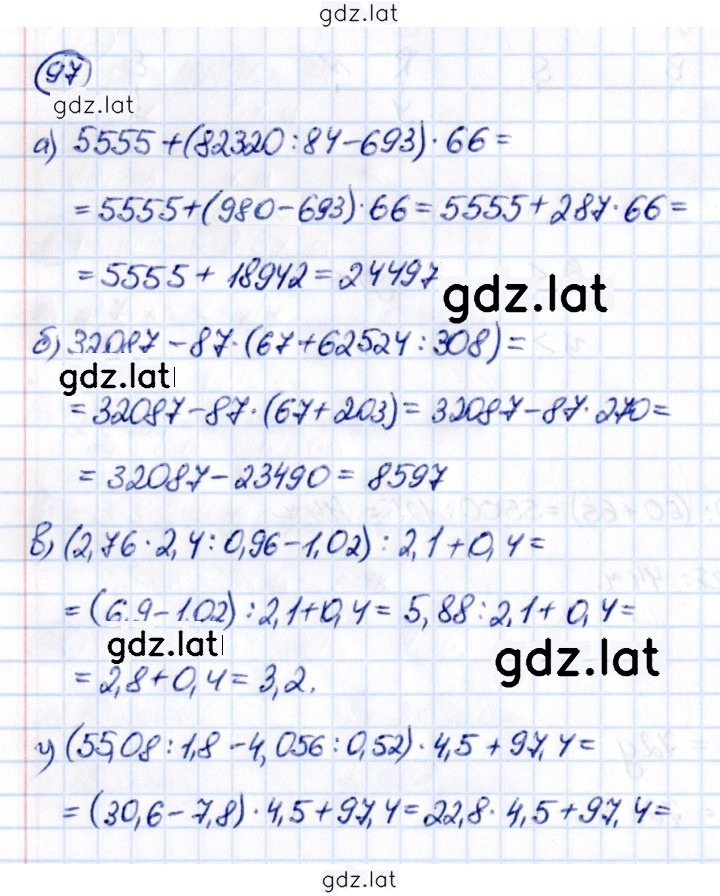 gdz.lat
97
gdz.lat
а) 5555+(82320:84-693)·66=
=5555+(980-693)·66=5555+287·66=
=5555+18942=24497
gdz.lat
б) 32087-87·(67+62524:308)=
gdz.lat
=32087-87·(67+203)=32087-87·270=
=32087-23490=8597
в) (2,76·2,4:0,96-1,02):2,1+0,4=
=(6,9-1,02):2,1+0,4=5,88:2,1+0,4=
gdz.lat
gdz.lat
=2,8+0,4=3,2.
г) (55,08:1,8-4,056:0,52)·4,5+97,4=
=(30,6-7,8)·4,5+97,4=22,8·4,5+97,4=
gdz.lat